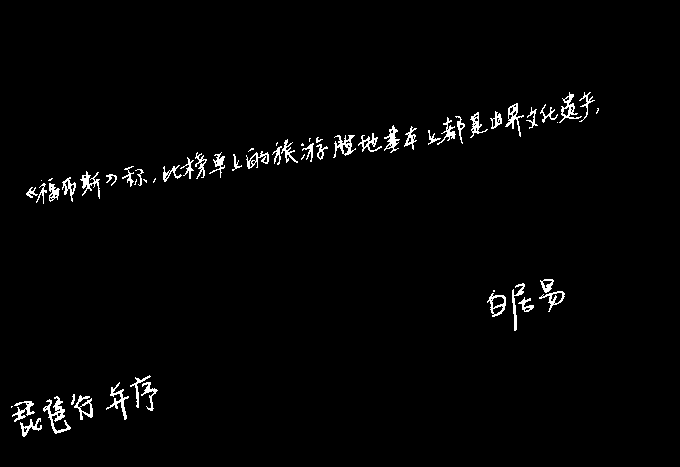 《福布斯》称，此榜单上的旅游胜地基本上都是世界文化遗产，
白居易
琵琶行 并序